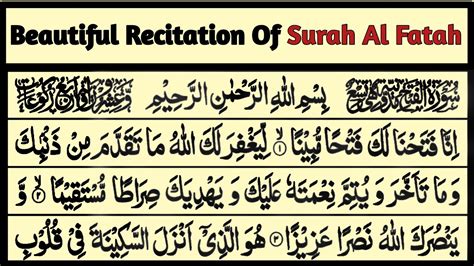 Beautiful Recitation Of Surah Al Fatah
سُوْرَةُ الْفَتْحِ مَدَنِيَّةٌ وَّهِيَ تِسْعٌ بِسْمِ اللّٰهِ الرَّحْمٰنِ الرَّحِيْمِ وَّعِشْرُوْنَ اٰيَةً وَّاَرْبَعُ رُكُوْعَاتٍ
اِنَّا فَتَحْنَا لَكَ فَتْحًا مُّبِيْنًا ۙ﴿١﴾ لِّيَغْفِرَ لَكَ اللّٰهُ مَا تَقَدَّمَ مِنْ ذَنْۢبِكَ
وَمَا تَاَخَّرَ وَ يُتِمَّ نِعْمَتَهٗ عَلَيْكَ وَ يَهْدِيَكَ صِرَاطًا مُّسْتَقِيْمًا ۙ﴿٢﴾ وَّ
يَنْصُرَكَ اللّٰهُ نَصْرًا عَزِيْزًا ﴿٣﴾ هُوَ الَّذِيْۤ اَنْزَلَ السَّكِيْنَةَ فِيْ قُلُوْبِ